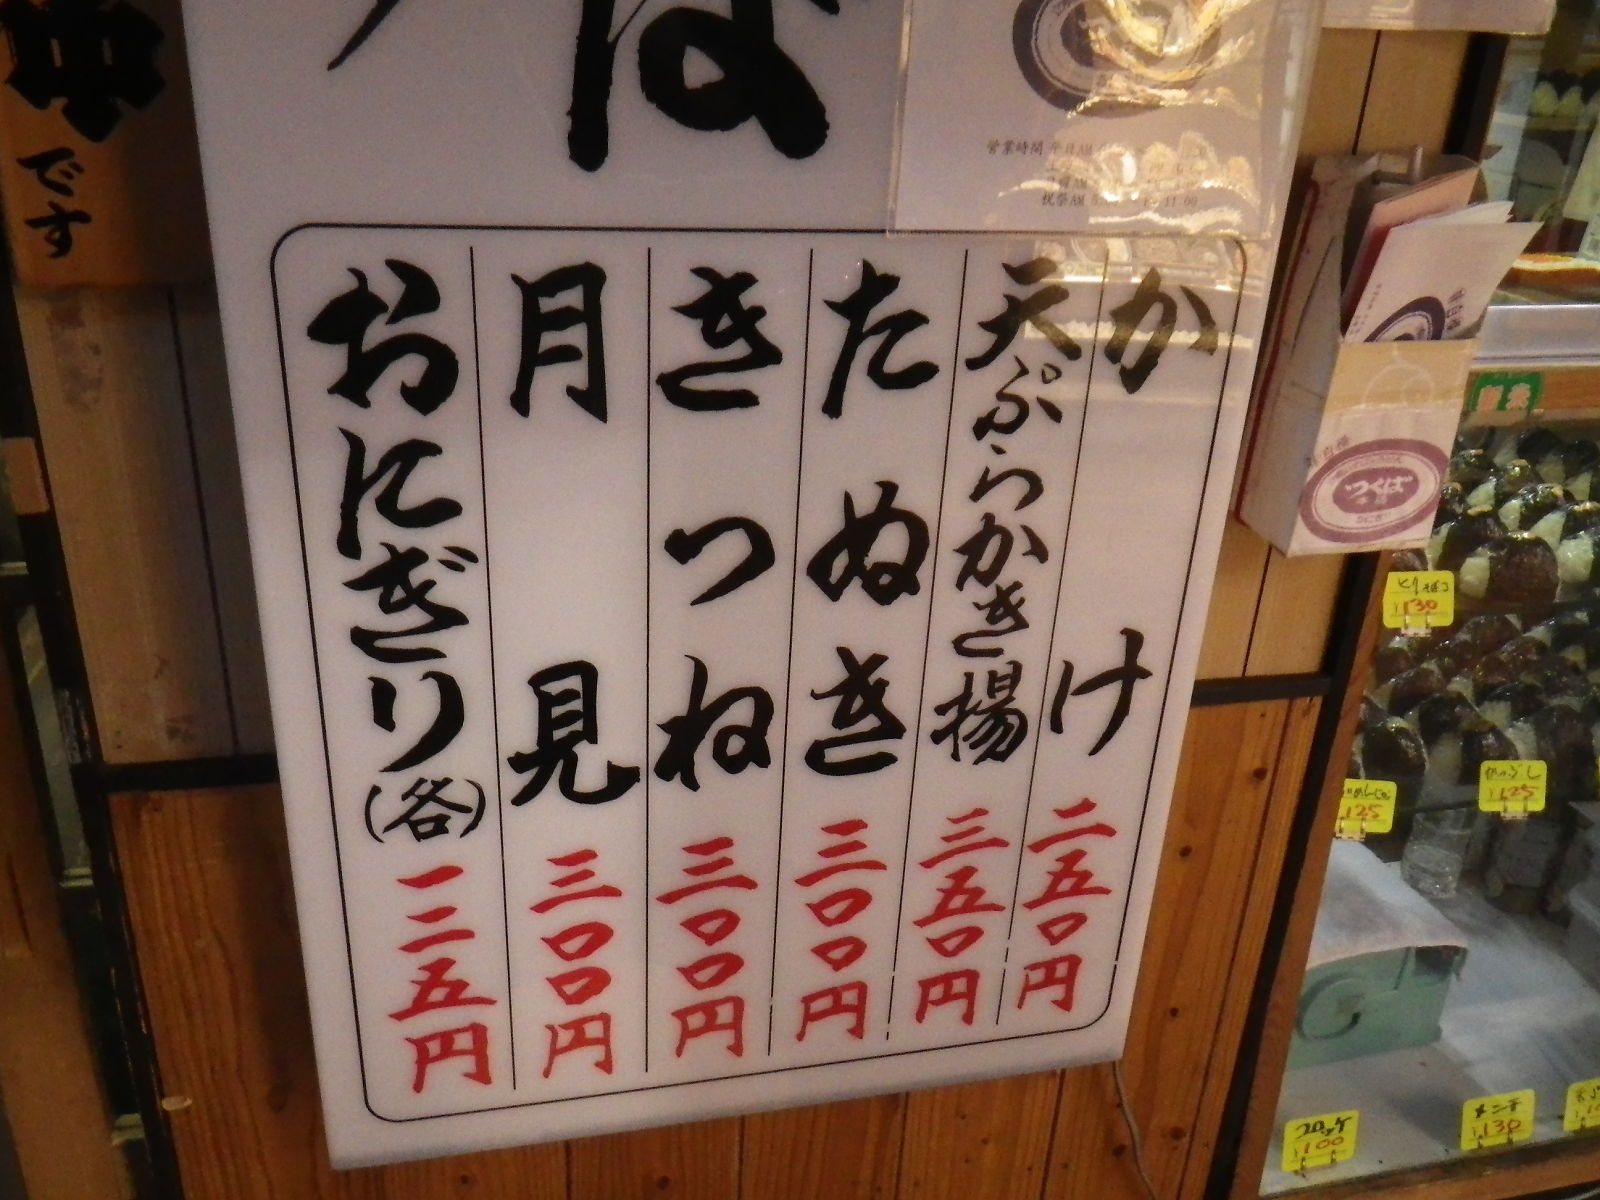 ば
営業時間 平日AM
祝祭AM
かけ 二五〇円
天ぷらかき揚 三五〇円
たぬき 三〇〇円
きつね 三〇〇円
月見 三〇〇円
おにぎり(各) 一二五円
中
です
つくば
本店
¥130
125
¥125
コロッケ
¥100
メンチ
¥130